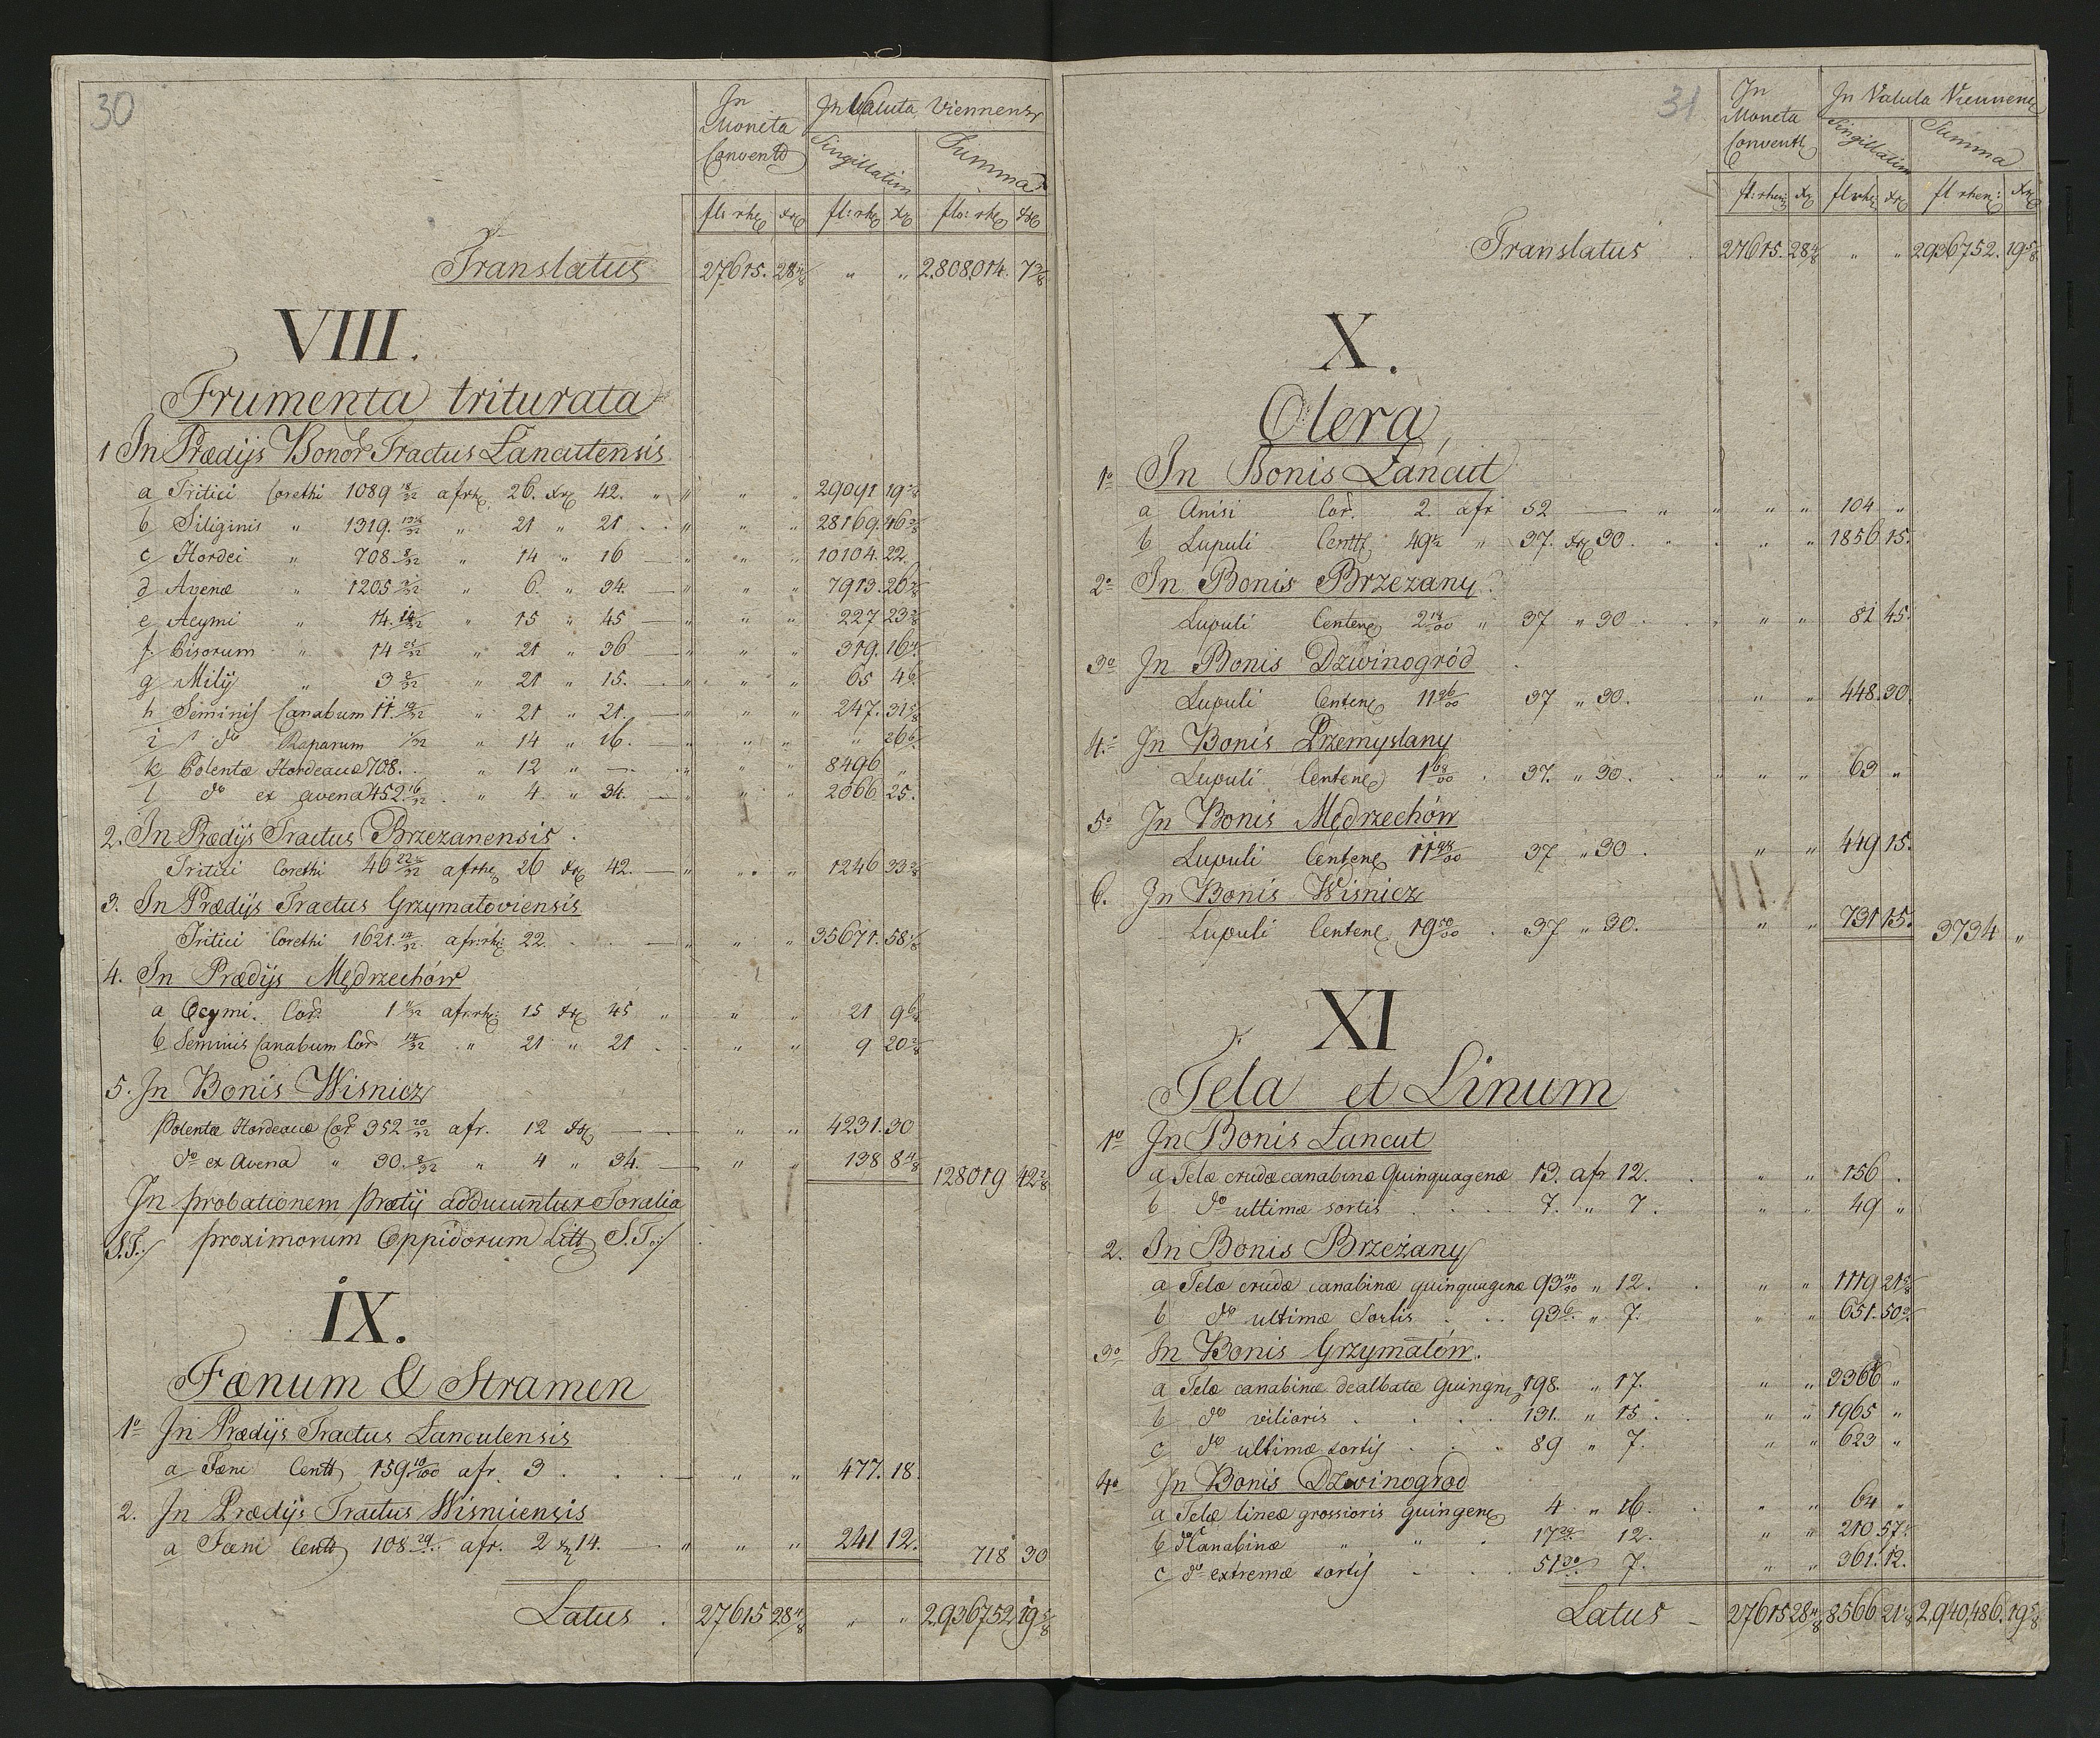 30
In Moneta Convent: In Valuta Viennensi
Singillatim Summa
fl: rh: xr fl: rh: xr flo: rh: xr
Translatus 27615. 28 4/8 " " 2.808.014. 7 3/8
VIII.
Frumenta triturata
1 In Prædijs Bonor Tractus Lancutensis
a Tritici Corethi 1089 18/32 afrh: 26. xr 42. " " " " 29091 19
b Siliginis " 1319. " 21 " 21 . " " " 28169. 46
c Hordei " 708. 8/32 " 14 " 16 — " " " 10104. 22.
d Avenæ " 1205 " 6. " 34. — " " " 7913. 20
e Acymi " 14. " 15 " 45 — " " " 227 23
f. Pisorum " 14 25/32 " 21 " 36 — " " " 319. 16
g Milij " 3 " 21 " 15. . " " " 65 46
h Seminis Canabum 11. " 21 " 21. — " " " 247. 31
i do Raparum 1/32 " 14 " 16. — " " " " 26
k Polentæ Hordeaceæ 708. . " 12 " —. . " " " 8496 "
l do ex avena 452. 16/32 . " 4 " 34. — " " " 2066 25.
2. In Prædijs Tractus Brzezanensis .
Tritici Corethi 46 afrhe 26 xr 42. — " " " 1246 33
3. In Prædijs Tractus Grzymatoviensis
Tritici Corethi 1621. 14/32 afr:rh: 22. . . — " " " 35671. 58
4. In Prædijs Mędrzechów
a Ocymi. Cor: 1 afr:rh: 15 xr 45 " " " 21 9
b Seminis Canabum Cor 14/32 . " 21 " 21 . " " 9 20
5. In Bonis Wisnicz
Polentæ Hordeaceæ Cor 352 20/32 afr. 12 xr — — " " 4231. 30
do ex Avena " 30. 8/32 " 4 " 34. — " " 138 8 4/8 128019 42 2/8
In probationem prætij adducuntur Foralia
S.T./ proximorum Oppidorum Litt S.T./
IX.
Fænum & Stramen
1o In Prædijs Tractus Lancutensis
a Fæni Centt 159 10/100 afr. 3 . . . — " " 477. 18.
2. In Prædijs Tractus Wisniciensis
a Fæni Centt 108. afr. 2 xr 14. — " " " 241 12. 718 30
Latus . 27615 28 4/8 " " 2936752 19 5/8
31
In Moneta Convent: In Valuta Viennensi
Singillatim Summa
fl: rhen: xr fl rhe: xr fl rhen: xr
Translatus . 27615. 28 4/8 " " 2936752. 19 5/8
X.
Olera
1o In Bonis Lancut
a Anisi Cor. 2. afr 52 — " " " " 104 "
b Lupuli Centt: 49 " 37. xr 30. " . " " 1856 15.
2o In Bonis Brzezany
Lupuli Centene 2 18/00 " 37 " 30 . . " " " 81 45.
3o In Bonis Dzwinogród
Lupuli Centene 11 96/00 37 " 30. " " 448. 30.
4. In Bonis Przemyslany
Lupuli Centene 1 68/00 . 37. " 30. . " " " 63 "
5o In Bonis Mędrzechów
Lupuli Centene 11 98/00 37 " 30 . " " 449 15.
6. In Bonis Wisnicz
Lupuli Centene 19 50/00 . 37 " 30. " " 731 15. 3734 "
XI
Tela et Linum
1o In Bonis Lancut
a Telæ crudæ canabinæ Quinquagenæ 13. afr 12. . " " 156 .
b do ultimæ sortis . . . . 7. " 7. " " 49 "
2. In Bonis Brzeżany
a Telæ crudæ canabinæ quinquagenæ 93 " 12. . " " 1119 21
b do ultimæ Sortis . . . 93 " 7. " " 651. 50
3o In Bonis Grzymałów.
a Telæ canabinæ dealbatæ Quingn: 198. " 17. " " 3366 "
b do viliaris . . . . 131. " 15 . . " " 1965 "
c do ultimæ sortis . . . 89 " 7. " " 623 "
4o In Bonis Dzwinogrod
a Telæ lineæ grossioris quingene 4 " 16. . " " 64 "
b Kanabinæ " " . 17 12. . " " 210 57
c do extremæ sortis . . . 51 7. " " 361. 12.
Latus — 27615 28 4/8 8566 21 2,940,486. 19 5/8